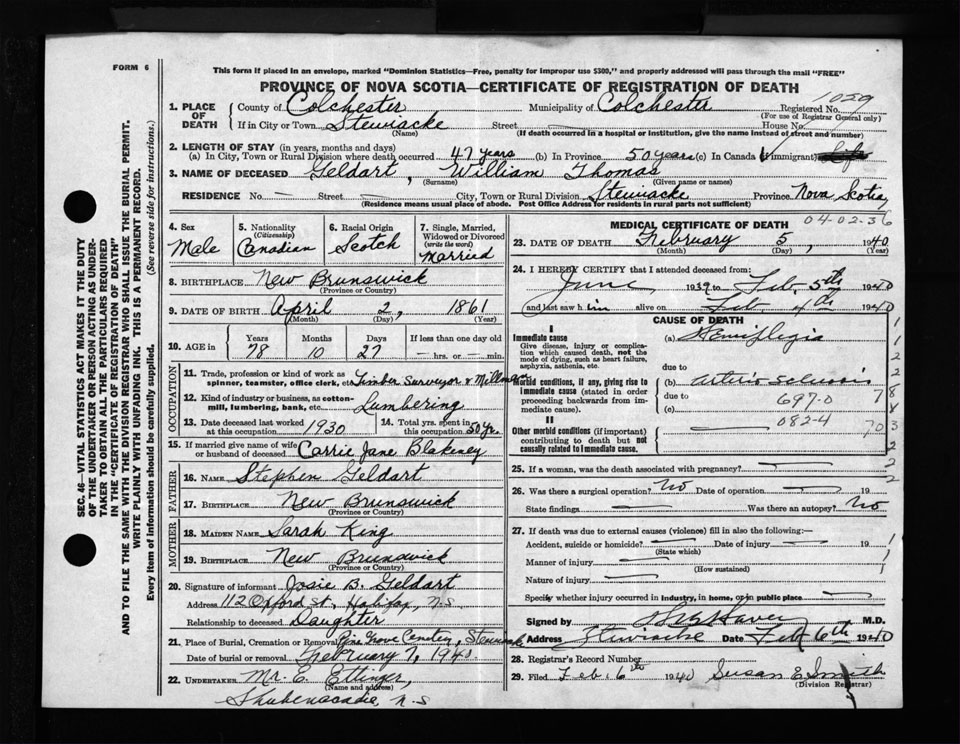 FORM 6
This form if placed in an envelope, marked "Dominion Statistics—Free, penalty for improper use $300," and properly addressed will pass through the mail "FREE"
PROVINCE OF NOVA SCOTIA—CERTIFICATE OF REGISTRATION OF DEATH
1029
1. PLACE OF DEATH
County of Colchester Municipality of Colchester Registered No.
(For use of Registrar General only)
If in City or Town Stewiacke Street House No.
(Name) (If death occurred in a hospital or Institution, give the name instead of street and number)
2. LENGTH OF STAY (in years, months and days)
(a) In City, Town or Rural Division where death occurred 47 years (b) In Province 50 years (c) In Canada (if immigrant) Life
3. NAME OF DECEASED Geldart, William Thomas
(Surname) (Given name or names)
RESIDENCE No. — Street — City, Town or Rural Division Stewiacke Province Nova Scotia
(Residence means usual place of abode. Post Office Address for residents in rural parts not sufficient)
4. Sex Male
5. Nationality (Citizenship) Canadian
6. Racial Origin Scotch
7. Single, Married, Widowed or Divorced (write the word) Married
8. BIRTHPLACE New Brunswick
(Province or Country)
9. DATE OF BIRTH April 2, 1861
(Month) (Day) (Year)
10. AGE in
Years Months Days If less than one day old
78 10 27 — hrs. or — min.
OCCUPATION
11. Trade, profession or kind of work as spinner, teamster, office clerk, etc. Timber Surveyor & Millman
12. Kind of industry or business, as cotton-mill, lumbering, bank, etc. Lumbering
13. Date deceased last worked at this occupation 1930
14. Total yrs. spent in this occupation 50 yr.
15. If married give name of wife or husband of deceased Carrie Jane Blakeney
FATHER
16. NAME Stephen Geldart
17. BIRTHPLACE New Brunswick
(Province or Country)
MOTHER
18. MAIDEN NAME Sarah King
19. BIRTHPLACE New Brunswick
(Province or Country)
20. Signature of informant Josie B. Geldart
Address 112 Oxford St., Halifax, N.S
Relationship to deceased Daughter
21. Place of Burial, Cremation or Removal Pine Grove Cemetery, Stewiacke
Date of burial or removal February 7, 1940
22. UNDERTAKER Mr. E. Ettinger,
(Name and address)
Shubenacadie, N.S
MEDICAL CERTIFICATE OF DEATH
04-02-36
23. DATE OF DEATH February 5, 1940
(Month) (Day) (Year)
24. I HEREBY CERTIFY that I attended deceased from:
June 1939 to Feb. 5th 1940
and last saw him alive on Feb. 4th 1940
CAUSE OF DEATH
I
Immediate cause
Give disease, injury or complication which caused death, not the mode of dying, such as heart failure, asphyxia, asthenia, etc.
(a) Hemiplegia
due to
Morbid conditions, if any, giving rise to immediate cause (stated in order proceeding backwards from immediate cause).
(b) Arterio Sclerosis
due to 697-0
(c)
II
Other morbid conditions (if important) contributing to death but not causally related to immediate cause.
082-4
70
25. If a woman, was the death associated with pregnancy? —
26. Was there a surgical operation? No Date of operation — 19
State findings — Was there an autopsy? No
27. If death was due to external causes (violence) fill in also the following:—
Accident, suicide or homicide? — Date of injury — 19
(State which)
Manner of injury —
(How sustained)
Nature of injury —
Specify whether injury occurred in industry, in home, or in public place —
Signed by M.D.
Address Stewiacke Date Feb 6th 1940
28. Registrar's Record Number
29. Filed Feb. 6th 1940 Susan E. Smith
(Division Registrar)
SEC. 46—VITAL STATISTICS ACT MAKES IT THE DUTY
OF THE UNDERTAKER OR PERSON ACTING AS UNDER-
TAKER TO OBTAIN ALL THE PARTICULARS REQUIRED
IN THE "CERTIFICATE OF REGISTRATION OF DEATH"
AND TO FILE THE SAME WITH THE DIVISION REGISTRAR WHO SHALL ISSUE THE BURIAL PERMIT.
WRITE PLAINLY WITH UNFADING INK. THIS IS A PERMANENT RECORD.
Every item of information should be carefully supplied. (See reverse side for instructions.)